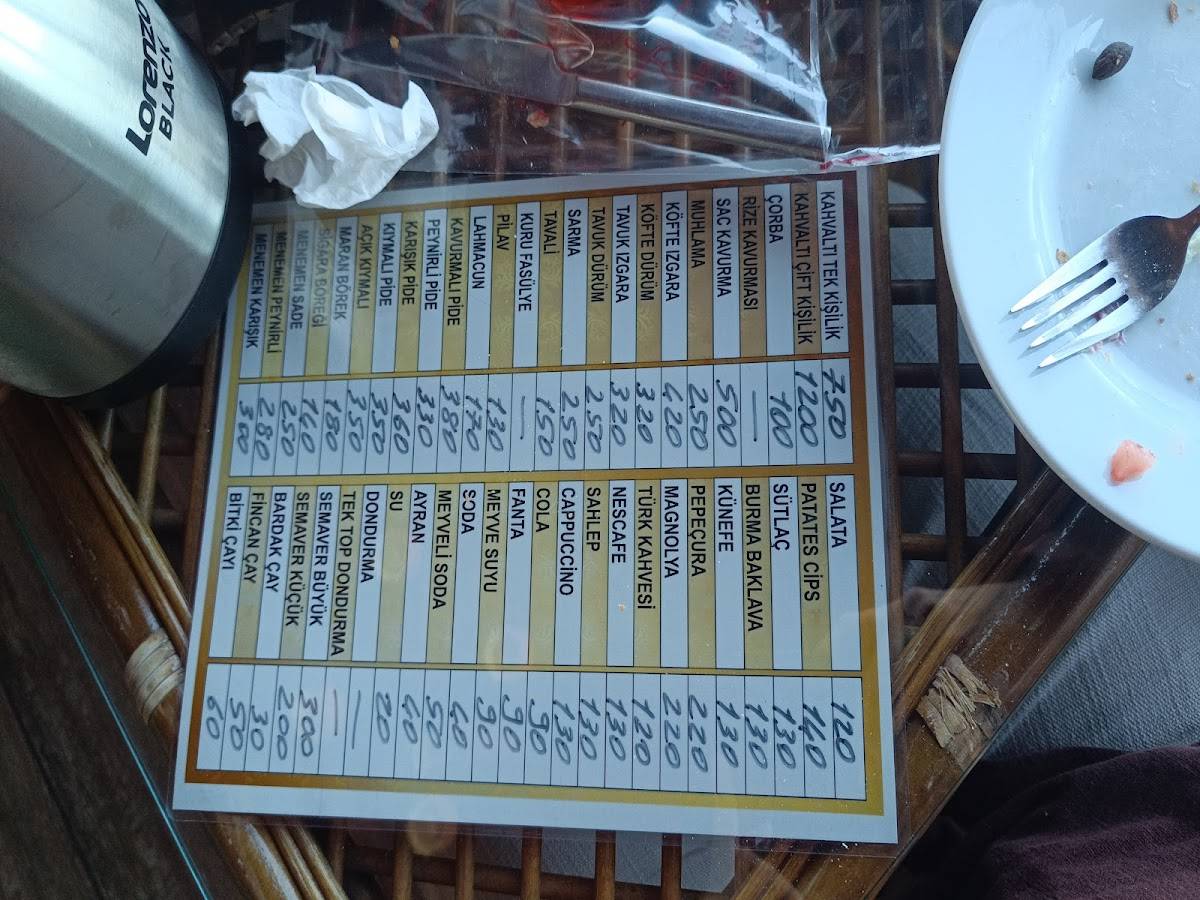 Lorenzo
BLACK
KAHVALTI TEK KİŞİLİK 750
KAHVALTI ÇİFT KİŞİLİK 1200
ÇORBA 100
RİZE KAVURMASI —
SAC KAVURMA 500
MUHLAMA 250
KÖFTE IZGARA 420
KÖFTE DÜRÜM 320
TAVUK IZGARA 320
TAVUK DÜRÜM 250
SARMA 250
TAVALİ 150
KURU FASÜLYE —
PİLAV 130
LAHMACUN 170
KAVURMALI PİDE 380
PEYNİRLİ PİDE 330
KARIŞIK PİDE 360
KIYMALI PİDE 350
AÇIK KIYMALI 350
BÖREK 180
SİGARA BÖREĞİ 160
MENEMEN SADE 250
MENEMEN PEYNİRLİ 280
MENEMEN KARIŞIK 300
SALATA 120
PATATES CİPS 140
SÜTLAÇ 130
BURMA BAKLAVA 130
KÜNEFE 130
PEPEÇURA 220
MAGNOLYA 220
TÜRK KAHVESİ 120
NESCAFE 130
SAHLEP 130
CAPPUCCİNO 130
COLA 90
FANTA 90
MEYVE SUYU 90
SODA 40
MEYVELİ SODA 50
AYRAN 40
SU 20
DONDURMA —
TEK TOP DONDURMA —
SEMAVER BÜYÜK 300
SEMAVER KÜÇÜK 200
BARDAK ÇAY 30
FİNCAN ÇAY 50
BİTKİ ÇAYI 60